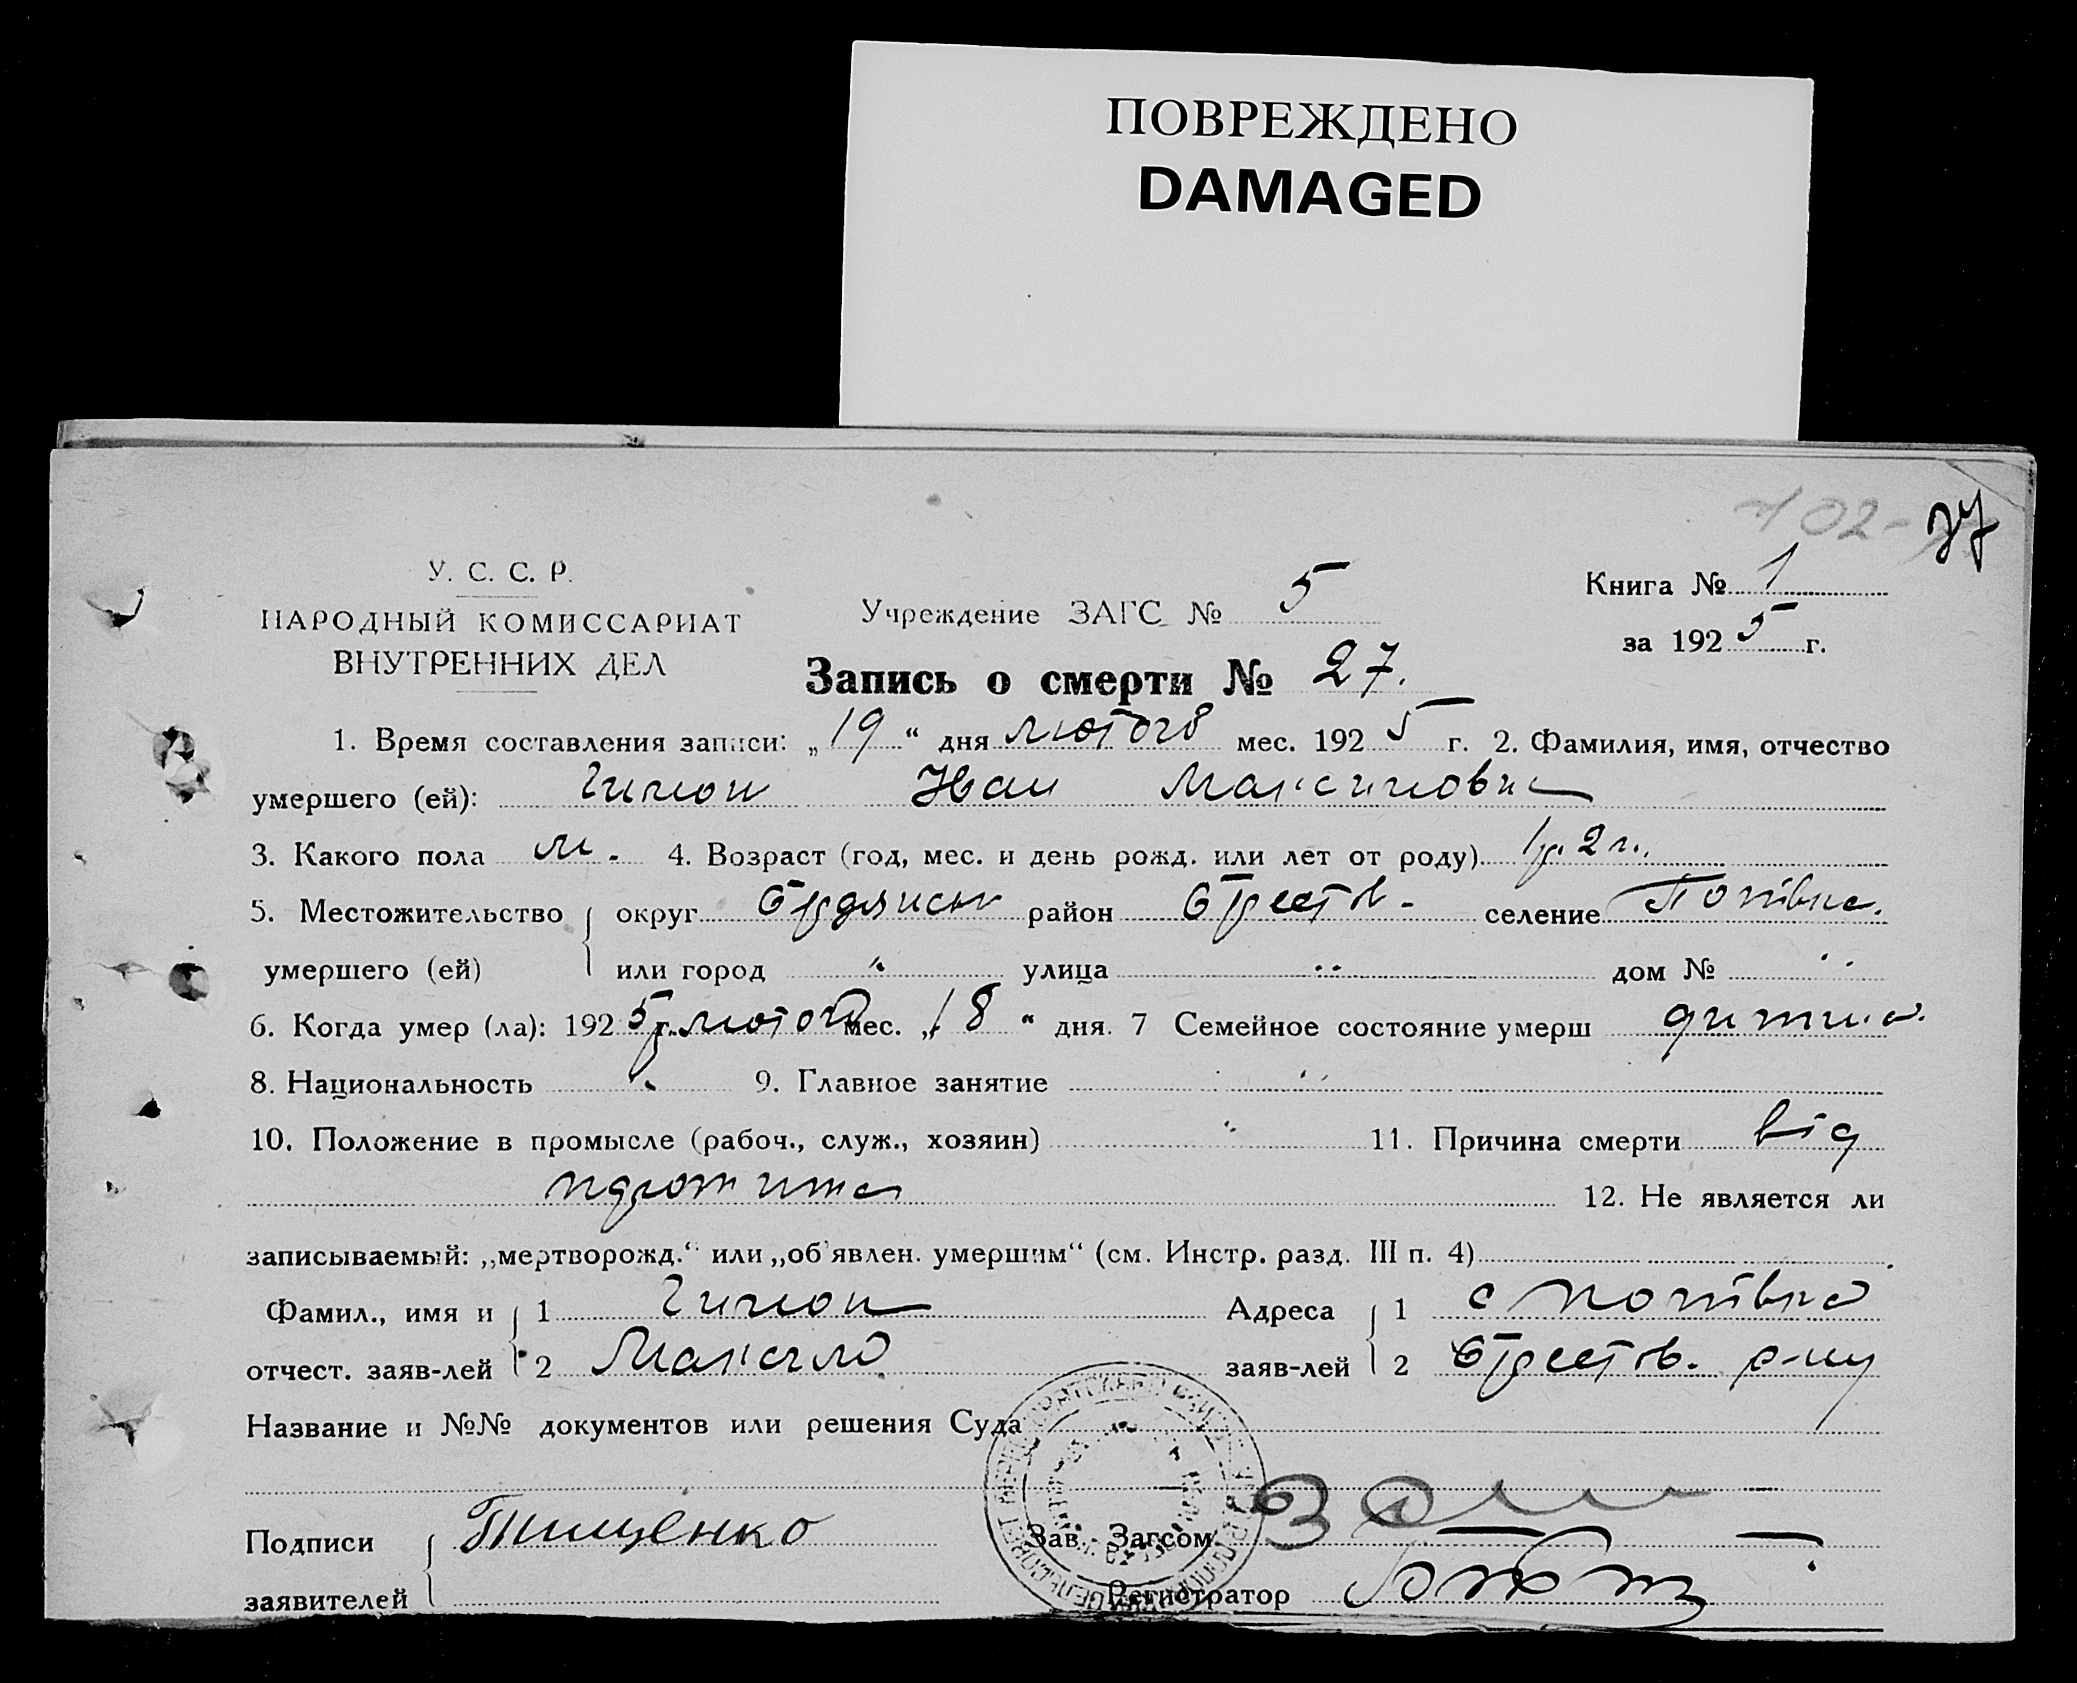 ПОВРЕЖДЕНО
DAMAGED
У. С. С. Р.
НАРОДНЫЙ КОМИССАРИАТ
ВНУТРЕННИХ ДЕЛ
Учреждение ЗАГС № 5
Книга № 1
за 1925 г.
Запись о смерти № 27.
1. Время составления записи: „19“ дня лютого мес. 1925 г. 2. Фамилия, имя, отчество
умершего (ей): Иван Максимович
3. Какого пола м. 4. Возраст (год, мес. и день рожд. или лет от роду)
5. Местожительство округ район селение Попівка.
умершего (ей) или город " улица " дом № "
6. Когда умер (ла): 1925 г. лютого мес. „18“ дня. 7 Семейное состояние умерш дитина.
8. Национальность " 9. Главное занятие "
10. Положение в промысле (рабоч., служ., хозяин) " 11. Причина смерти від
12. Не является ли
записываемый: „мертворожд.“ или „об'явлен. умершим“ (см. Инстр. разд. III п. 4)
Фамил., имя и 1 Адреса 1 с Попівка
отчест. заяв-лей 2 Максим заяв-лей 2 р-ну
Название и №№ документов или решения Суда
Подписи Тищенко Зав. Загсом
заявителей Регистратор